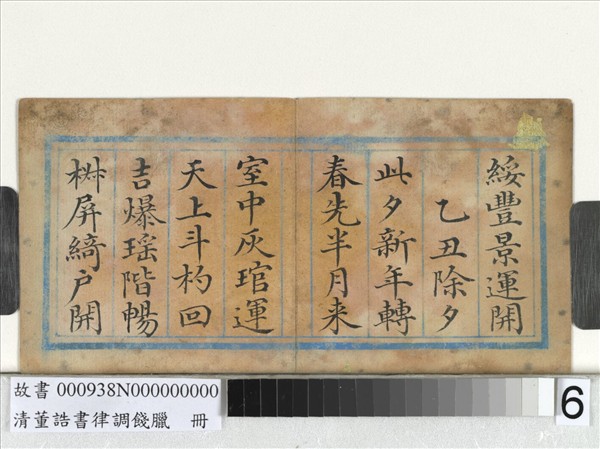 綏豐景運開
乙丑除夕
此夕新年轉
春先半月来
室中灰琯運
天上斗杓回
吉爆瑶階暢
椒屏綺戸開
故書 000938N000000000
清董誥書律調餞臘 冊
6